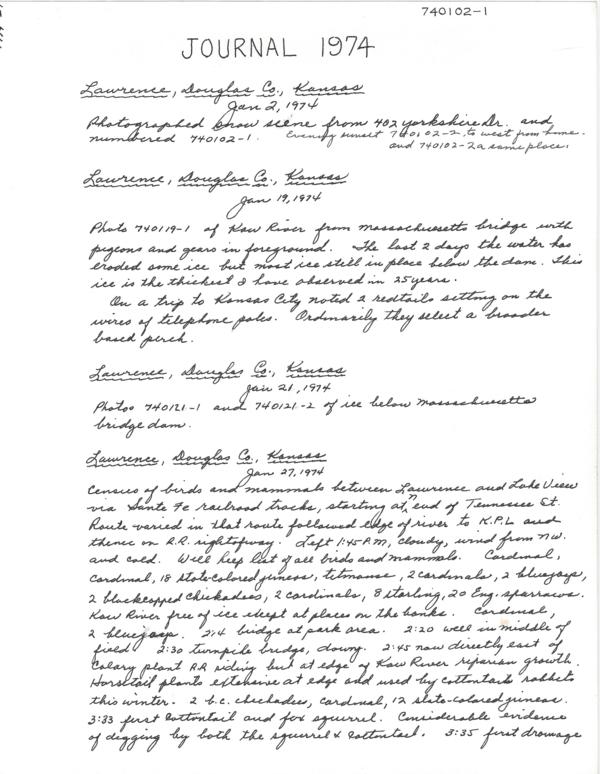 740102-1
JOURNAL 1974
Lawrence, Douglas Co., Kansas
Jan 2, 1974
Photographed snow scene from 402 Yorkshire Dr. and
numbered 740102-1. Evening sunset 740102-2, to west from home.
and 740102-2a same place.
Lawrence, Douglas Co., Kansas
Jan 19, 1974
Photo 740119-1 of Kaw River from Massachusetts bridge with
pigeons and gears in foreground. The last 2 days the water has
eroded some ice but most ice still in place below the dam. This
ice is the thickest I have observed in 25 years.
On a trip to Kansas City noted 2 redtails setting on the
wires of telephone poles. Ordinarily they select a broader
based perch.
Lawrence, Douglas Co., Kansas
Jan 21, 1974
Photos 740121-1 and 740121-2 of ice below Massachusetts
bridge dam.
Lawrence, Douglas Co., Kansas
Jan 27, 1974
Census of birds and mammals between Lawrence and Lake View
via Santa Fe railroad tracks, starting at n end of Tennessee St.
Route varied in that route followed edge of river to K.P.L and
thence on R.R. rightofway. Left 1:45 P.M., cloudy, wind from N.W.
and cold. Will keep list of all birds and mammals. Cardinal,
cardinal, 18 slate-colored juncos, titmouse, 2 cardinals, 2 bluejays,
2 blackcapped chickadees, 2 cardinals, 8 starling, 20 Eng. sparrows.
Kaw River free of ice except at places on the banks. Cardinal,
2 bluejays. 2:14 bridge at park area. 2:20 well in middle of
field 2:30 turnpike bridge, downy. 2:45 now directly east of
Calary plant RR siding but at edge of Kaw River riparian growth.
Horsetail plants extensive at edge and used by cottontail rabbits
this winter. 2 b.c. chickadees, cardinal, 12 slate-colored juncos.
3:33 first cottontail and fox squirrel. Considerable evidence
of digging by both the squirrel & cottontail. 3:35 first drainage